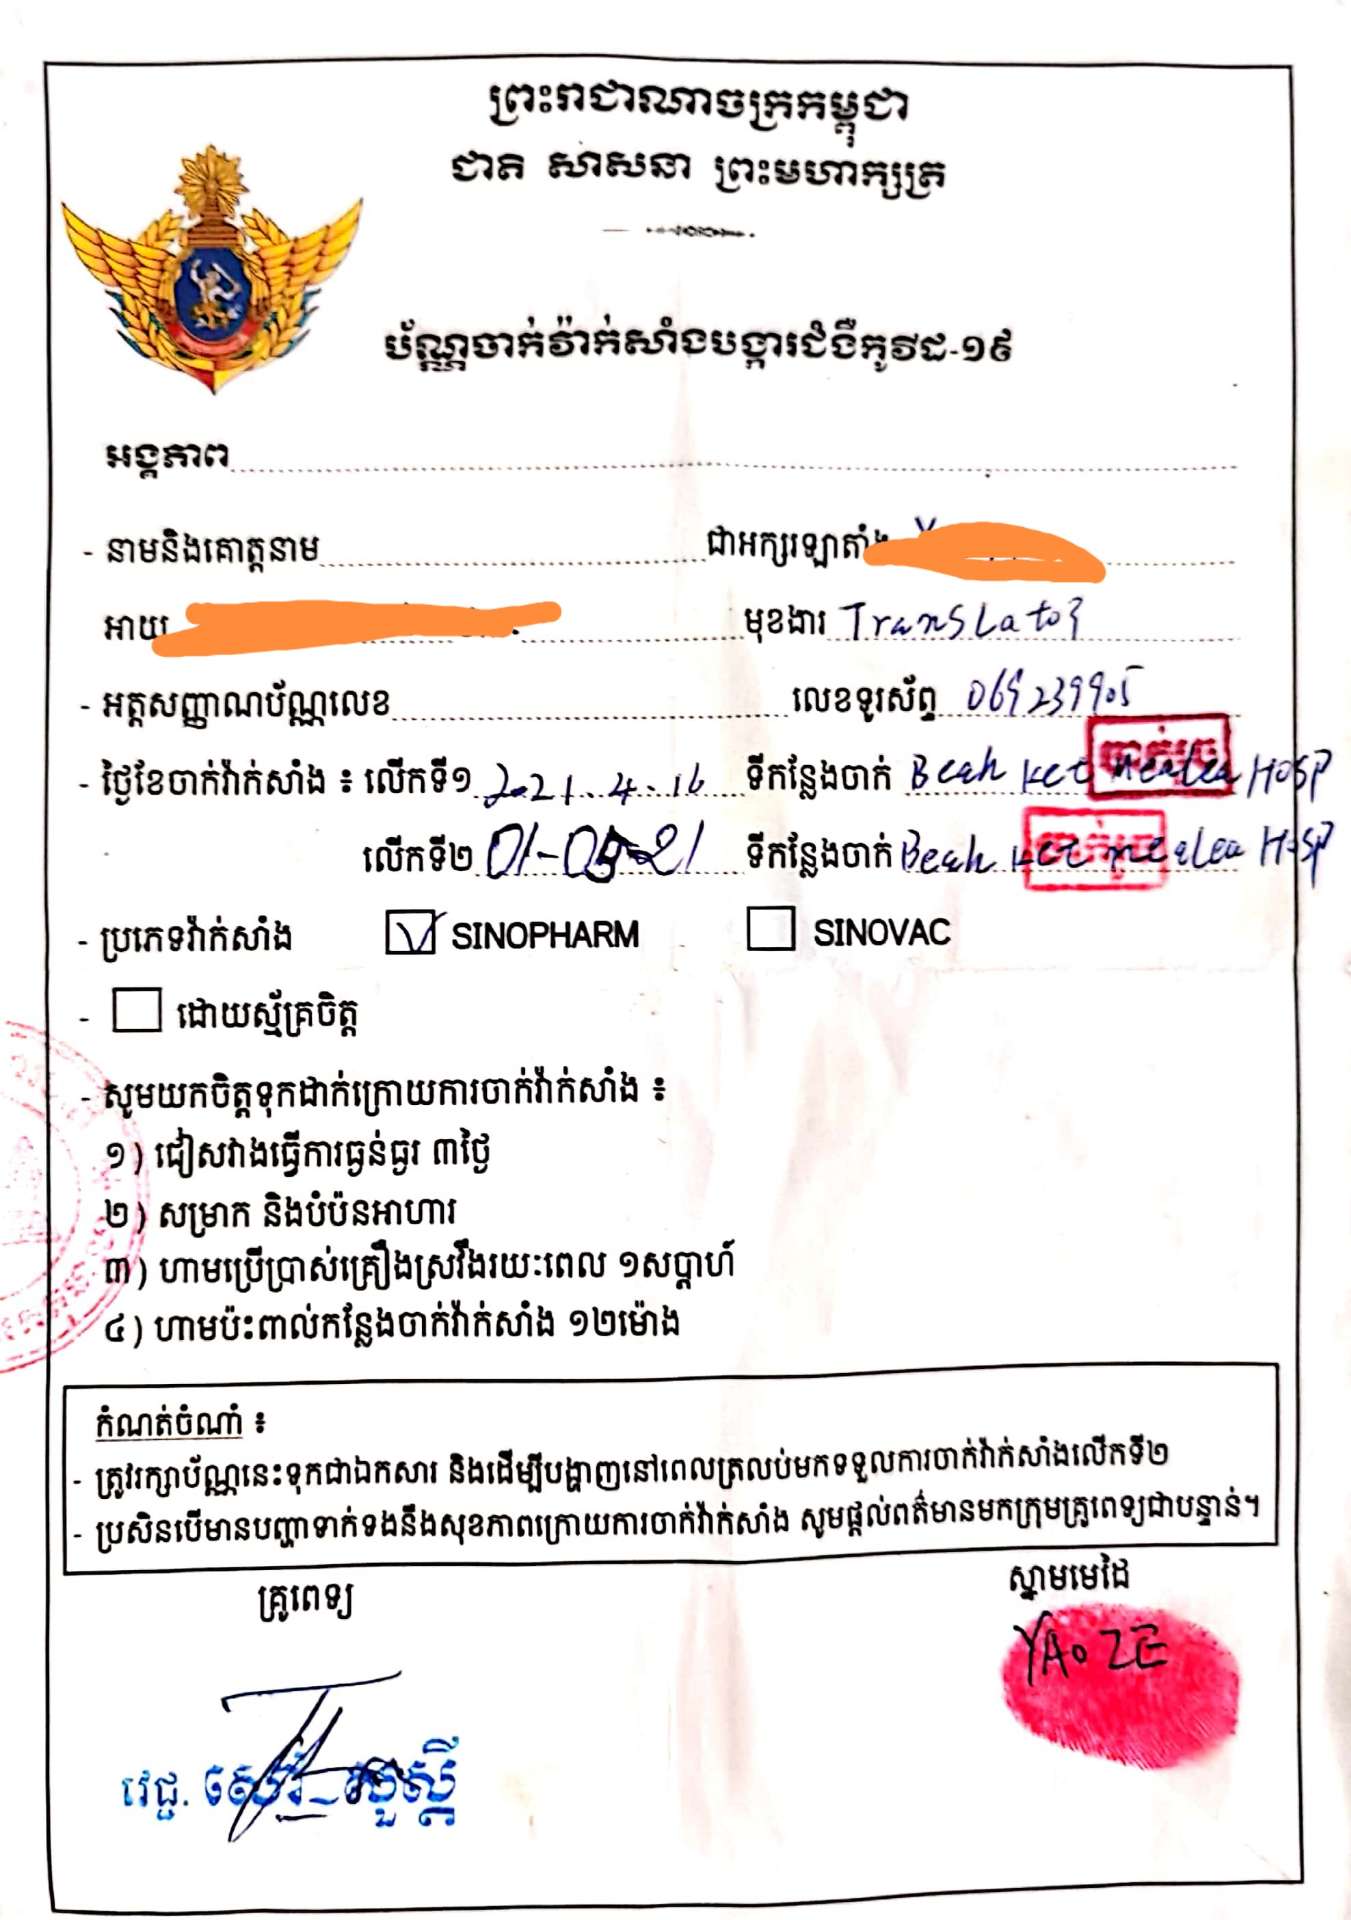 ព្រះរាជាណាចក្រកម្ពុជា
ជាតិ សាសនា ព្រះមហាក្សត្រ
ប័ណ្ណចាក់វ៉ាក់សាំងបង្ការជំងឺកូវីដ-១៩
អង្គភាព
- នាមនិងគោត្តនាម ជាអក្សរឡាតាំង
អាយុ មុខងារ Translator
- អត្តសញ្ញាណប័ណ្ណលេខ លេខទូរស័ព្ទ 069239905
- ថ្ងៃខែចាក់វ៉ាក់សាំង ៖ លើកទី១ 2021.4.16 ទីកន្លែងចាក់ Beah Ket mealea HOSP
លើកទី២ 01-05-21 ទីកន្លែងចាក់ Beah Ket mealea HOSP
- ប្រភេទវ៉ាក់សាំង SINOPHARM SINOVAC
- ដោយស្ម័គ្រចិត្ត
- សូមយកចិត្តទុកដាក់ក្រោយការចាក់វ៉ាក់សាំង ៖
១) ជៀសវាងធ្វើការធ្ងន់ធ្ងរ ៣ថ្ងៃ
២) សម្រាក និងបំប៉នអាហារ
៣) ហាមប្រើប្រាស់គ្រឿងស្រវឹងរយៈពេល ១សប្តាហ៍
៤) ហាមប៉ះពាល់កន្លែងចាក់វ៉ាក់សាំង ១២ម៉ោង
កំណត់ចំណាំ ៖
- ត្រូវរក្សាប័ណ្ណនេះទុកជាឯកសារ និងដើម្បីបង្ហាញនៅពេលត្រលប់មកទទួលការចាក់វ៉ាក់សាំងលើកទី២
- ប្រសិនបើមានបញ្ហាទាក់ទងនឹងសុខភាពក្រោយការចាក់វ៉ាក់សាំង សូមផ្តល់ពត៌មានមកក្រុមគ្រូពេទ្យជាបន្ទាន់។
គ្រូពេទ្យ ស្នាមមេដៃ
YAO ZE
វេជ្ជ.